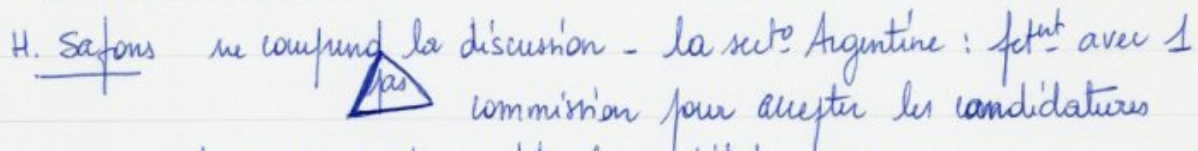 H. Safons ne comprend pas la discussion - la sect° Argentine : fctnt avec 1
commission pour accepter les candidatures